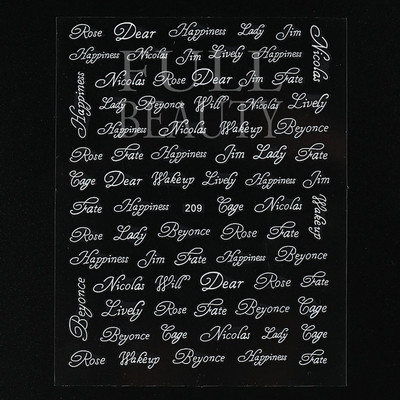 Rose Dear Happiness Lady Jim Nicolas
Happiness Nicolas Jim Lively Happiness
Happiness Nicolas Rose Dear Jim Fate
Lady Beyonce Will Nicolas Lively
Happiness Nicolas Wakeup Beyonce
Rose Fate Happiness Jim Lady Fate
Cage Dear Wakeup Lively Happiness Jim
Fate Happiness 209 Cage Nicolas Wakeup
Rose Lady Beyonce Rose Fate
Happiness Jim Fate Happiness Beyonce
Beyonce Nicolas Will Dear Rose Fate
Lively Rose Fate Beyonce Rose
Beyonce Cage Nicolas Lady Cage
Rose Wakeup Beyonce Happiness Fate
FULL
BEAUTY